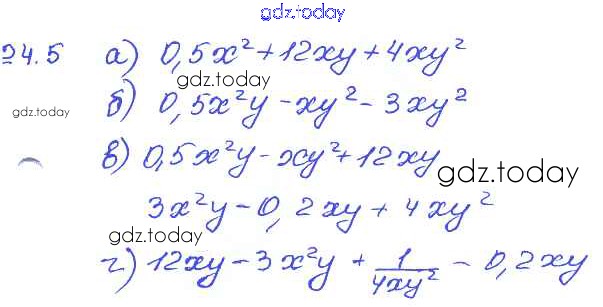 gdz.today
24.5 а) 0,5x² + 12xy + 4xy²
gdz.today
gdz.today
б) 0,5x²y - xy² - 3xy²
в) 0,5x²y - xy² + 12xy
gdz.today
3x²y - 0,2xy + 4xy²
gdz.today
г) 12xy - 3x²y + 1/4xy² - 0,2xy